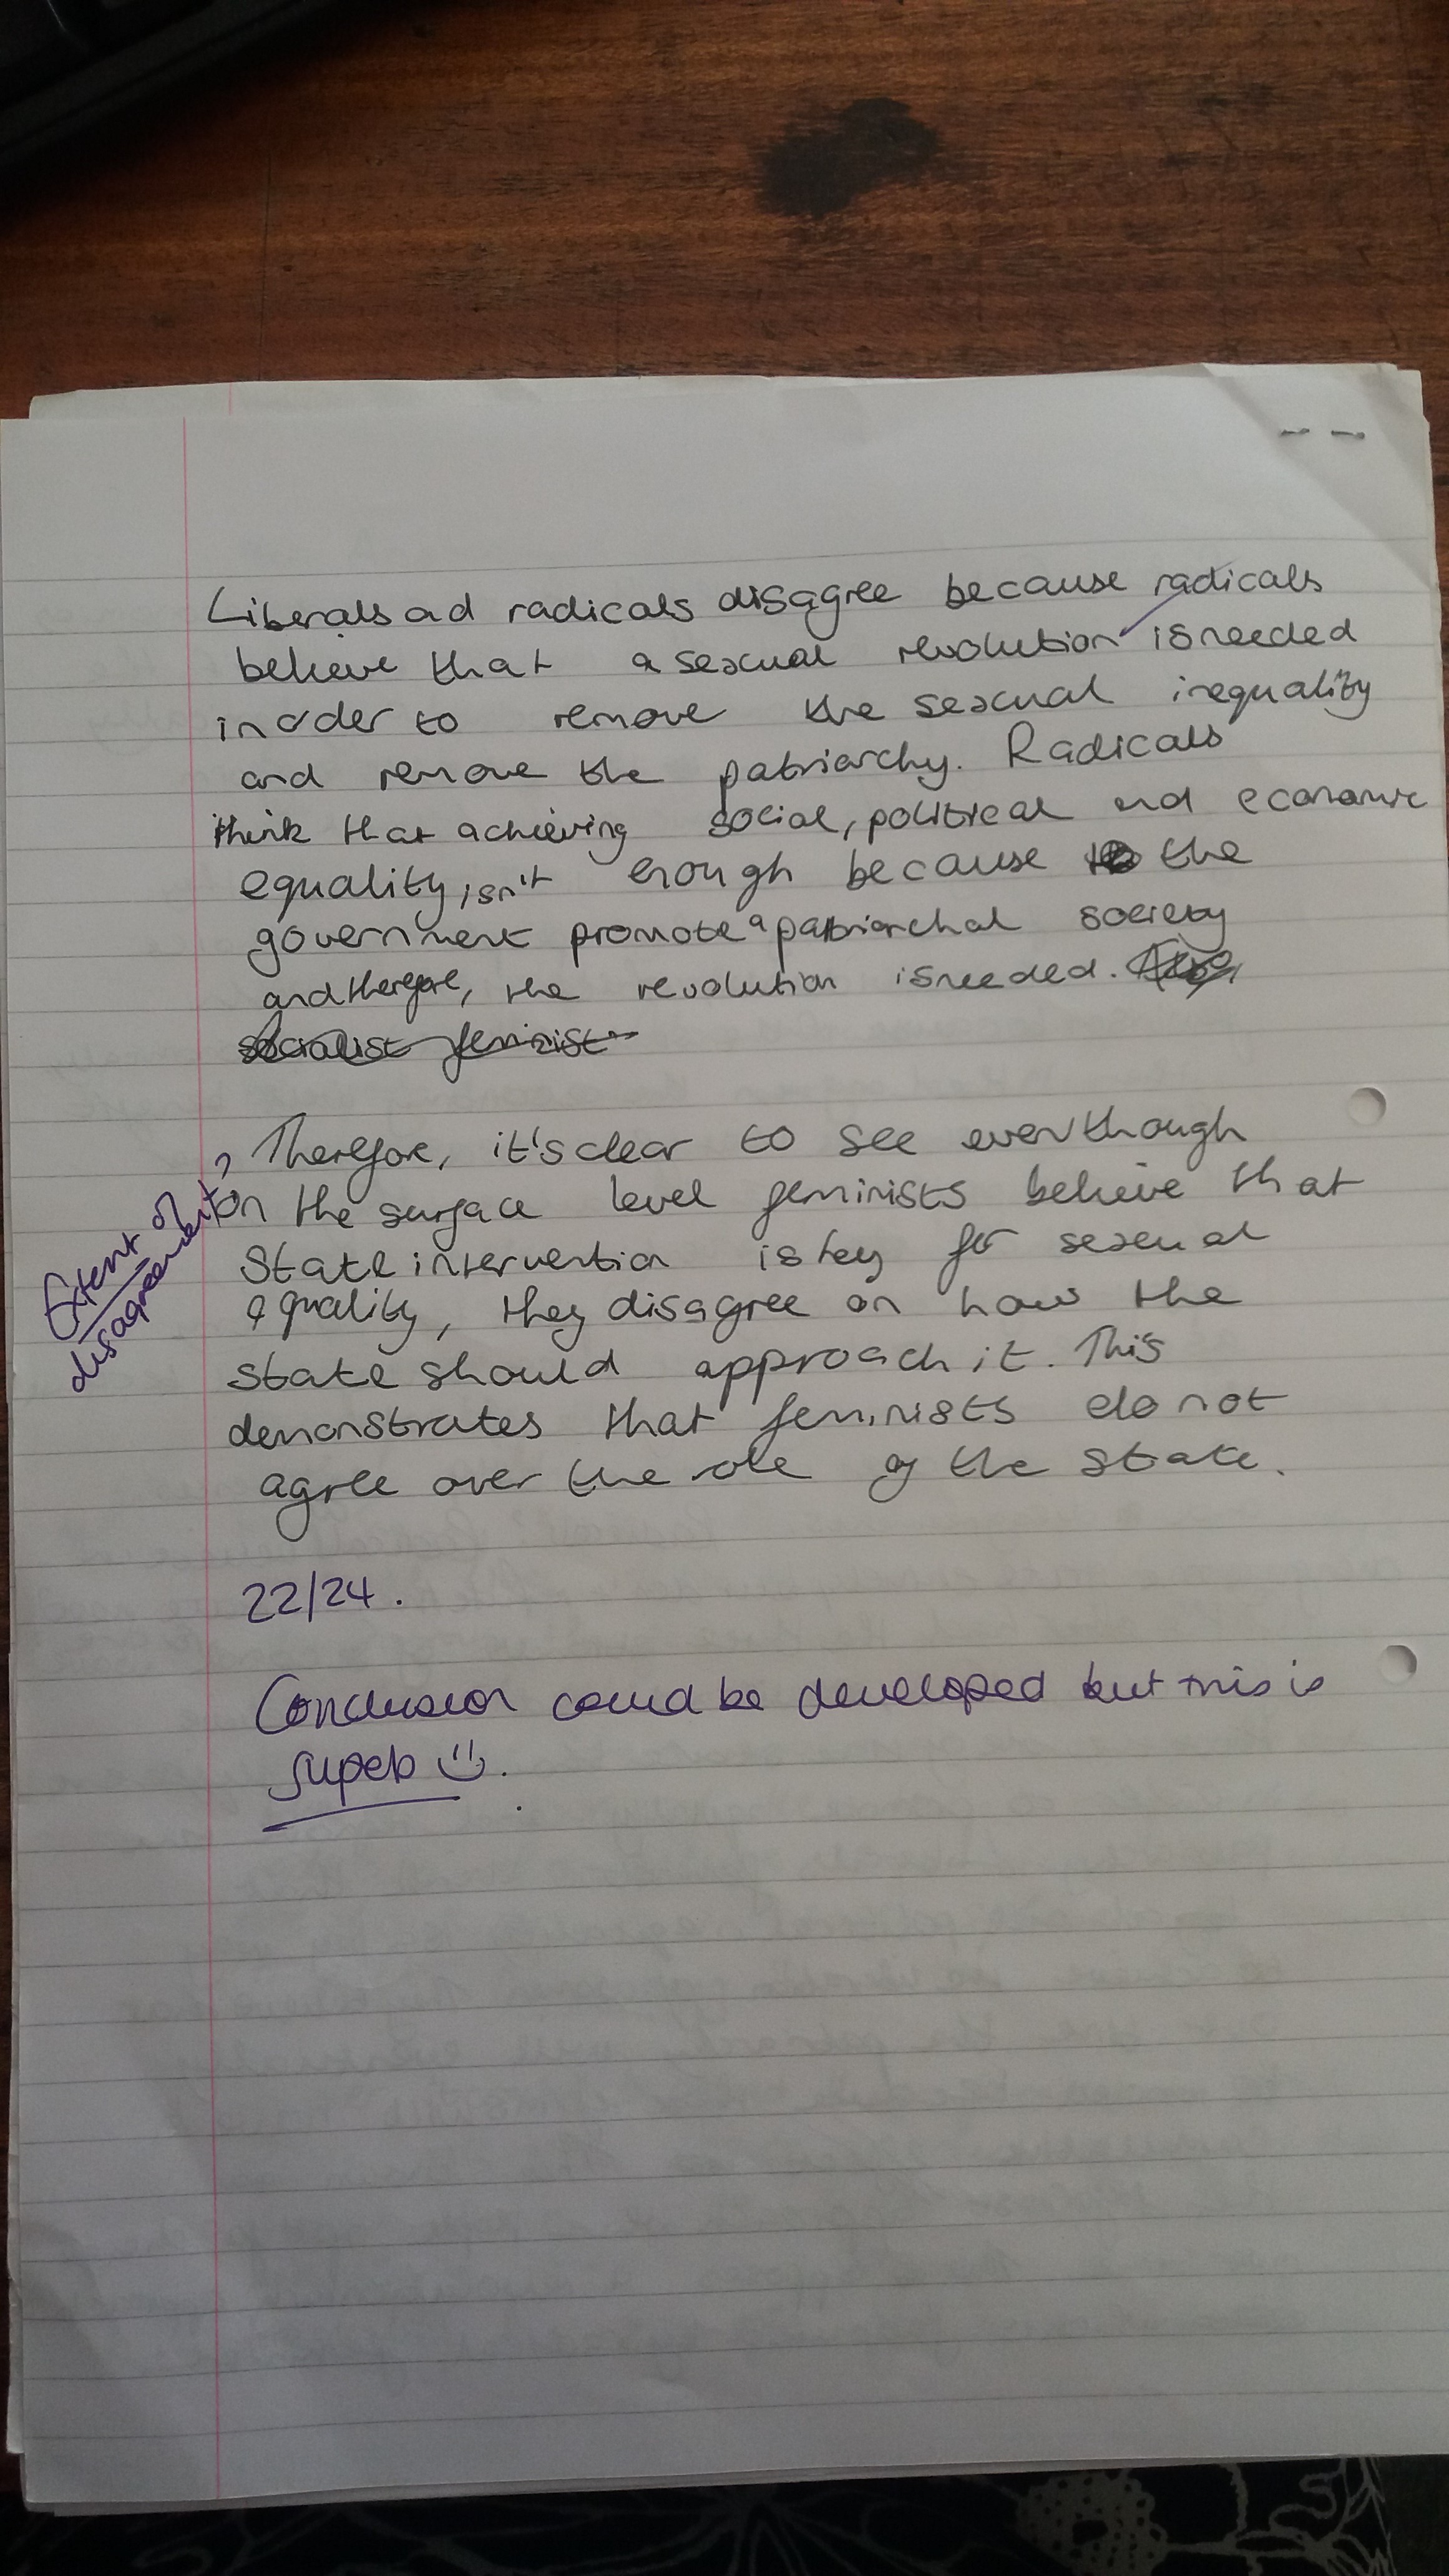 Liberals ad radicals disagree because radicals
believe that a sexual revolution is needed
in order to remove the sexual inequality
and remove the patriarchy. Radicals
think that achieving social, political and economic
equality, isn't enough because the
government promote a patriarchal society
and therefore, the revolution is needed.
socialist feminist
Therefore, it's clear to see even though
on the surface level feminists believe that
State intervention is key for sexual
equality, they disagree on how the
state should approach it. This
demonstrates that feminists do not
agree over the role of the state.
Extent of
disagreement?
22/24.
Conclusion could be developed but this is
superb